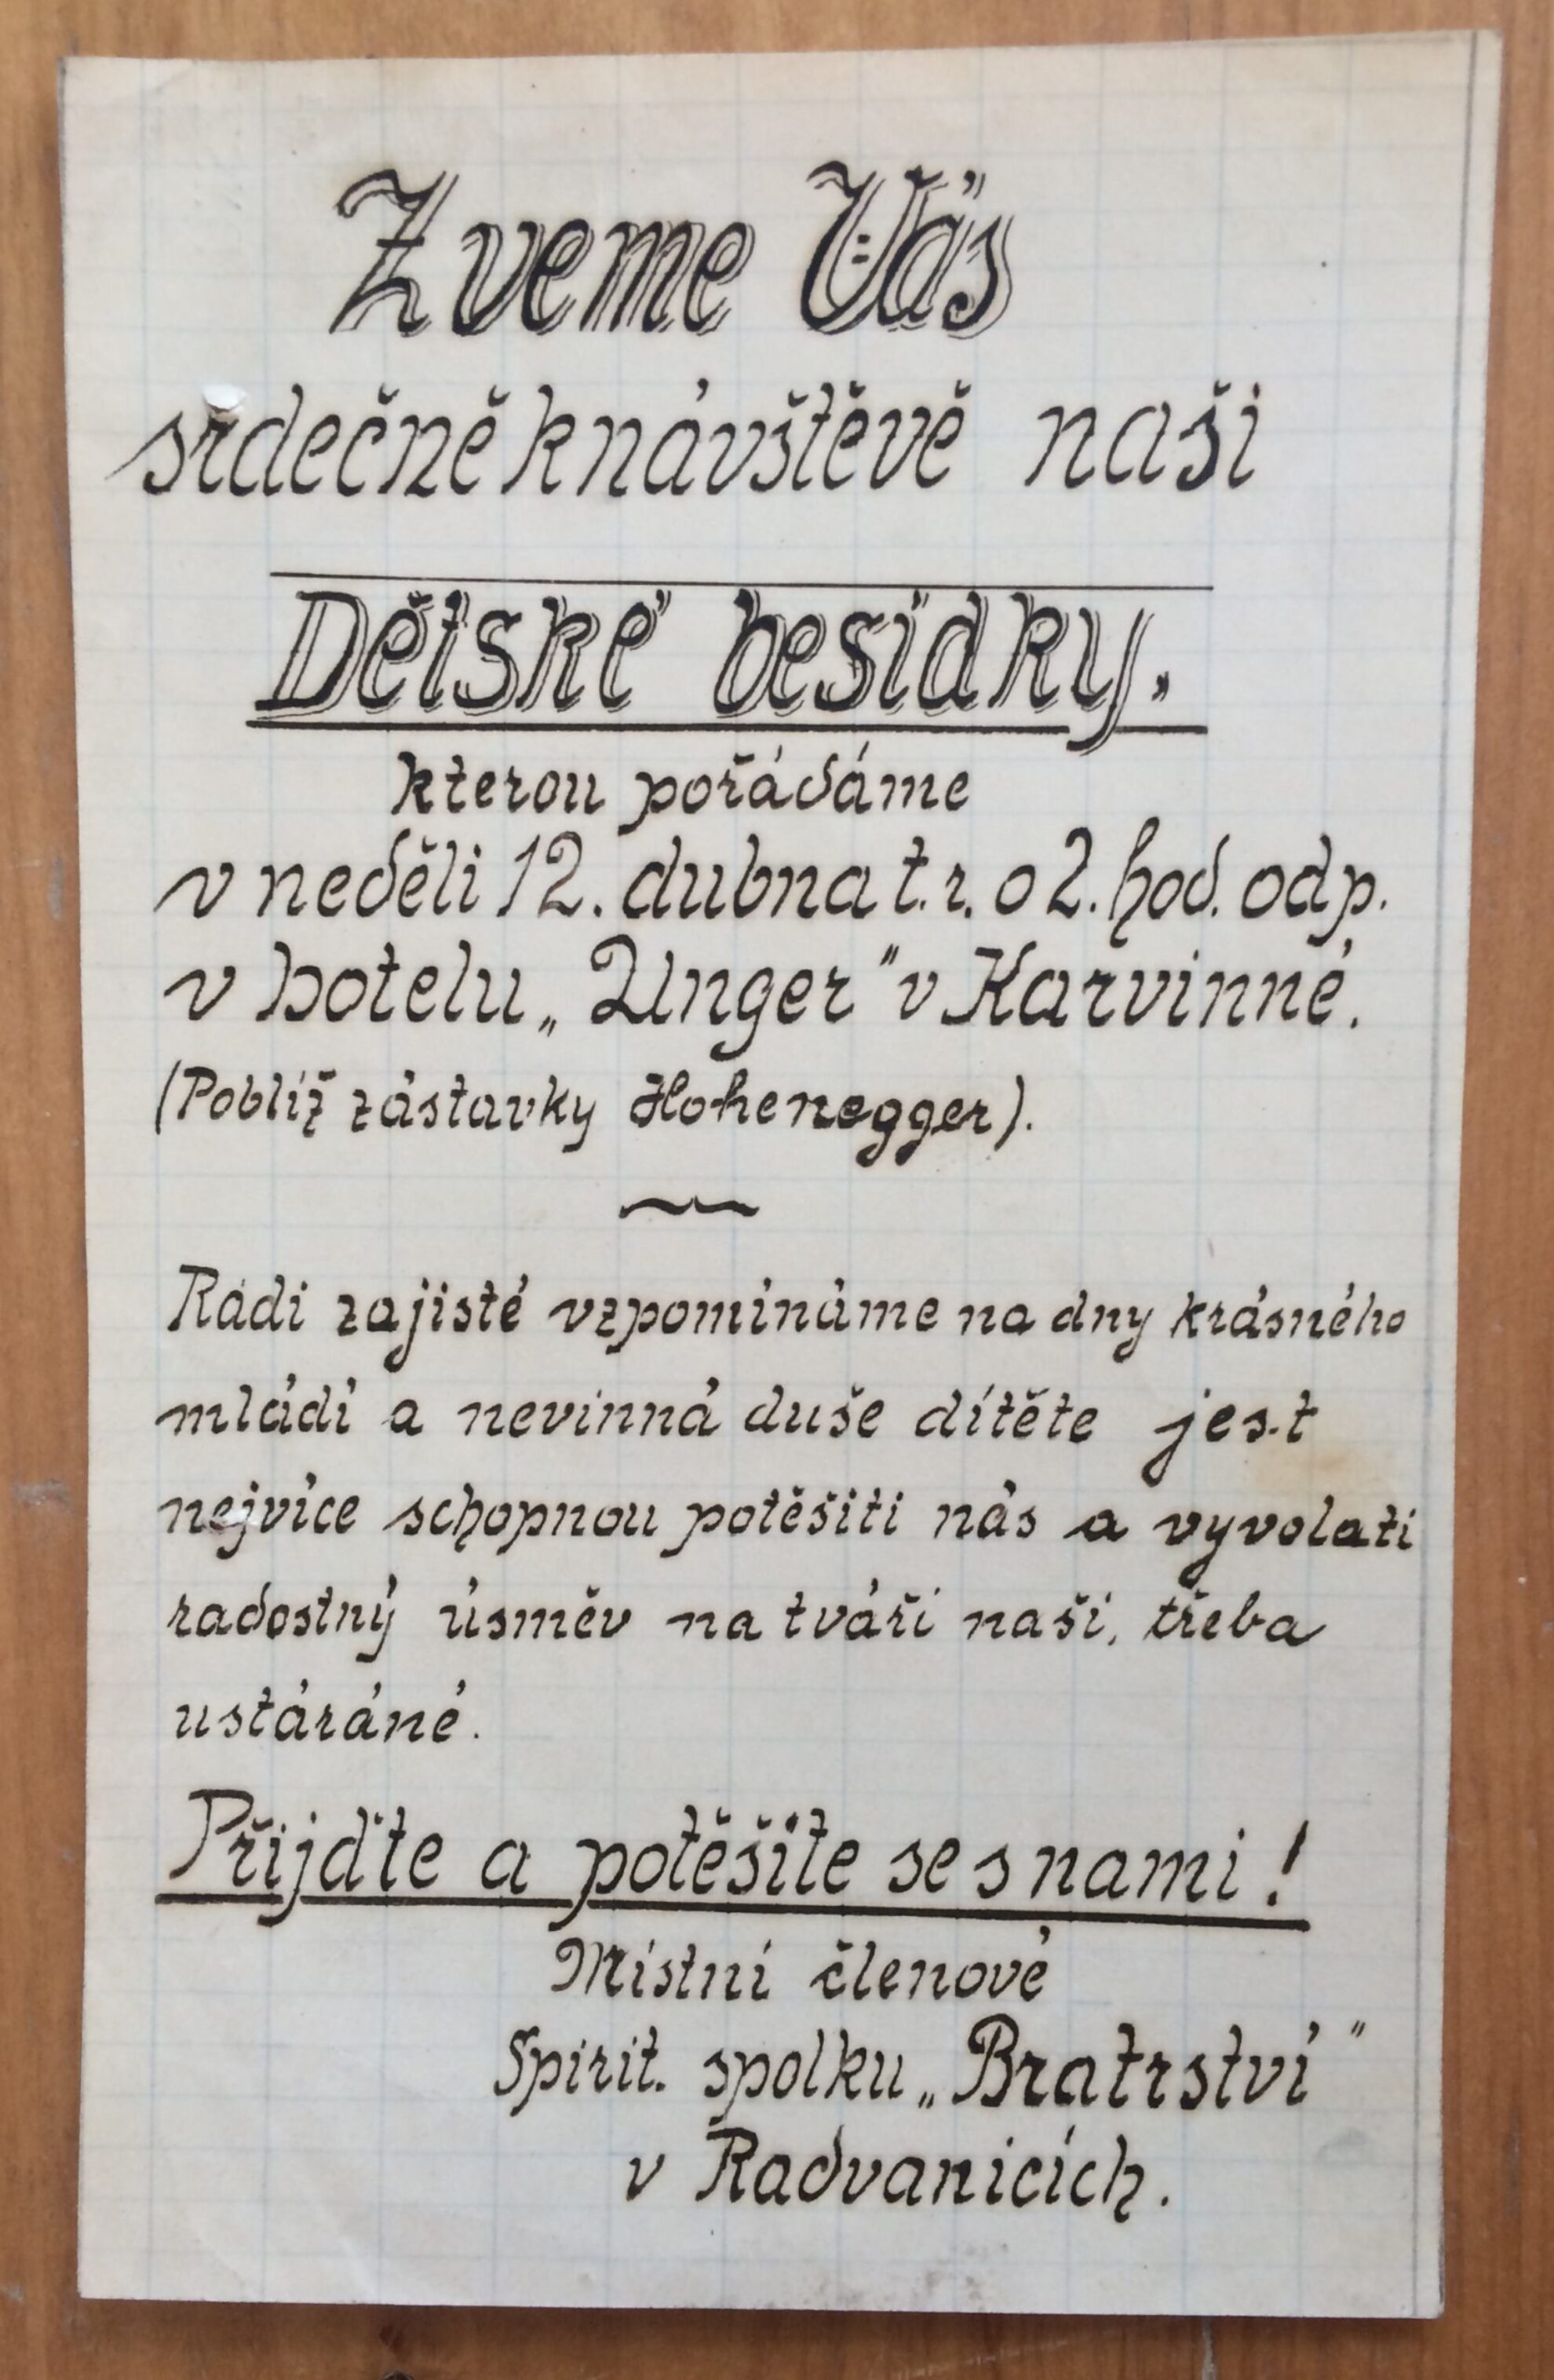 Zveme Vás
srdečně k návštěvě naši
Dětské besídky.
kterou pořádáme
v neděli 12. dubna t.r. o 2. hod. odp.
v hotelu „Unger" v Karvinné.
(Poblíž zástavky Hohenegger).
Rádi zajisté vzpomínáme na dny krásného
mládí a nevinná duše dítěte jest
nejvíce schopnou potěšiti nás a vyvolati
radostný úsměv na tváři naši, třeba
ustárané.
Přijďte a potěšite se s nami!
Místní členové
Spirit. spolku „Bratrství"
v Radvanicích.